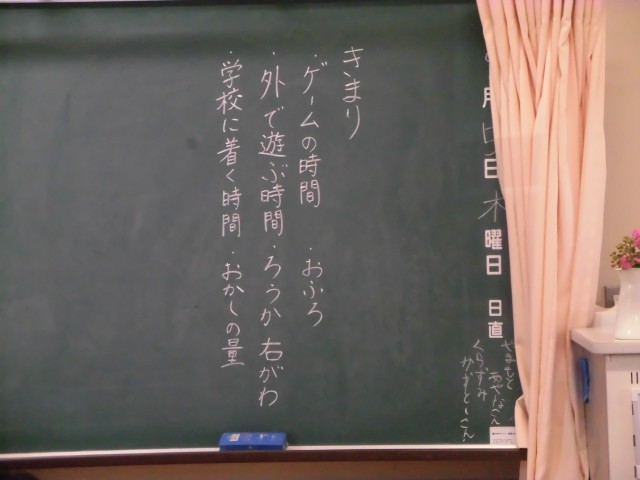 月 日 木 曜日 日直
やまもと
あやなさん
くらずみ
かずとしくん
きまり
・ゲームの時間 ・おふろ
・外で遊ぶ時間 ・ろうか 右がわ
・学校に着く時間 ・おかしの量